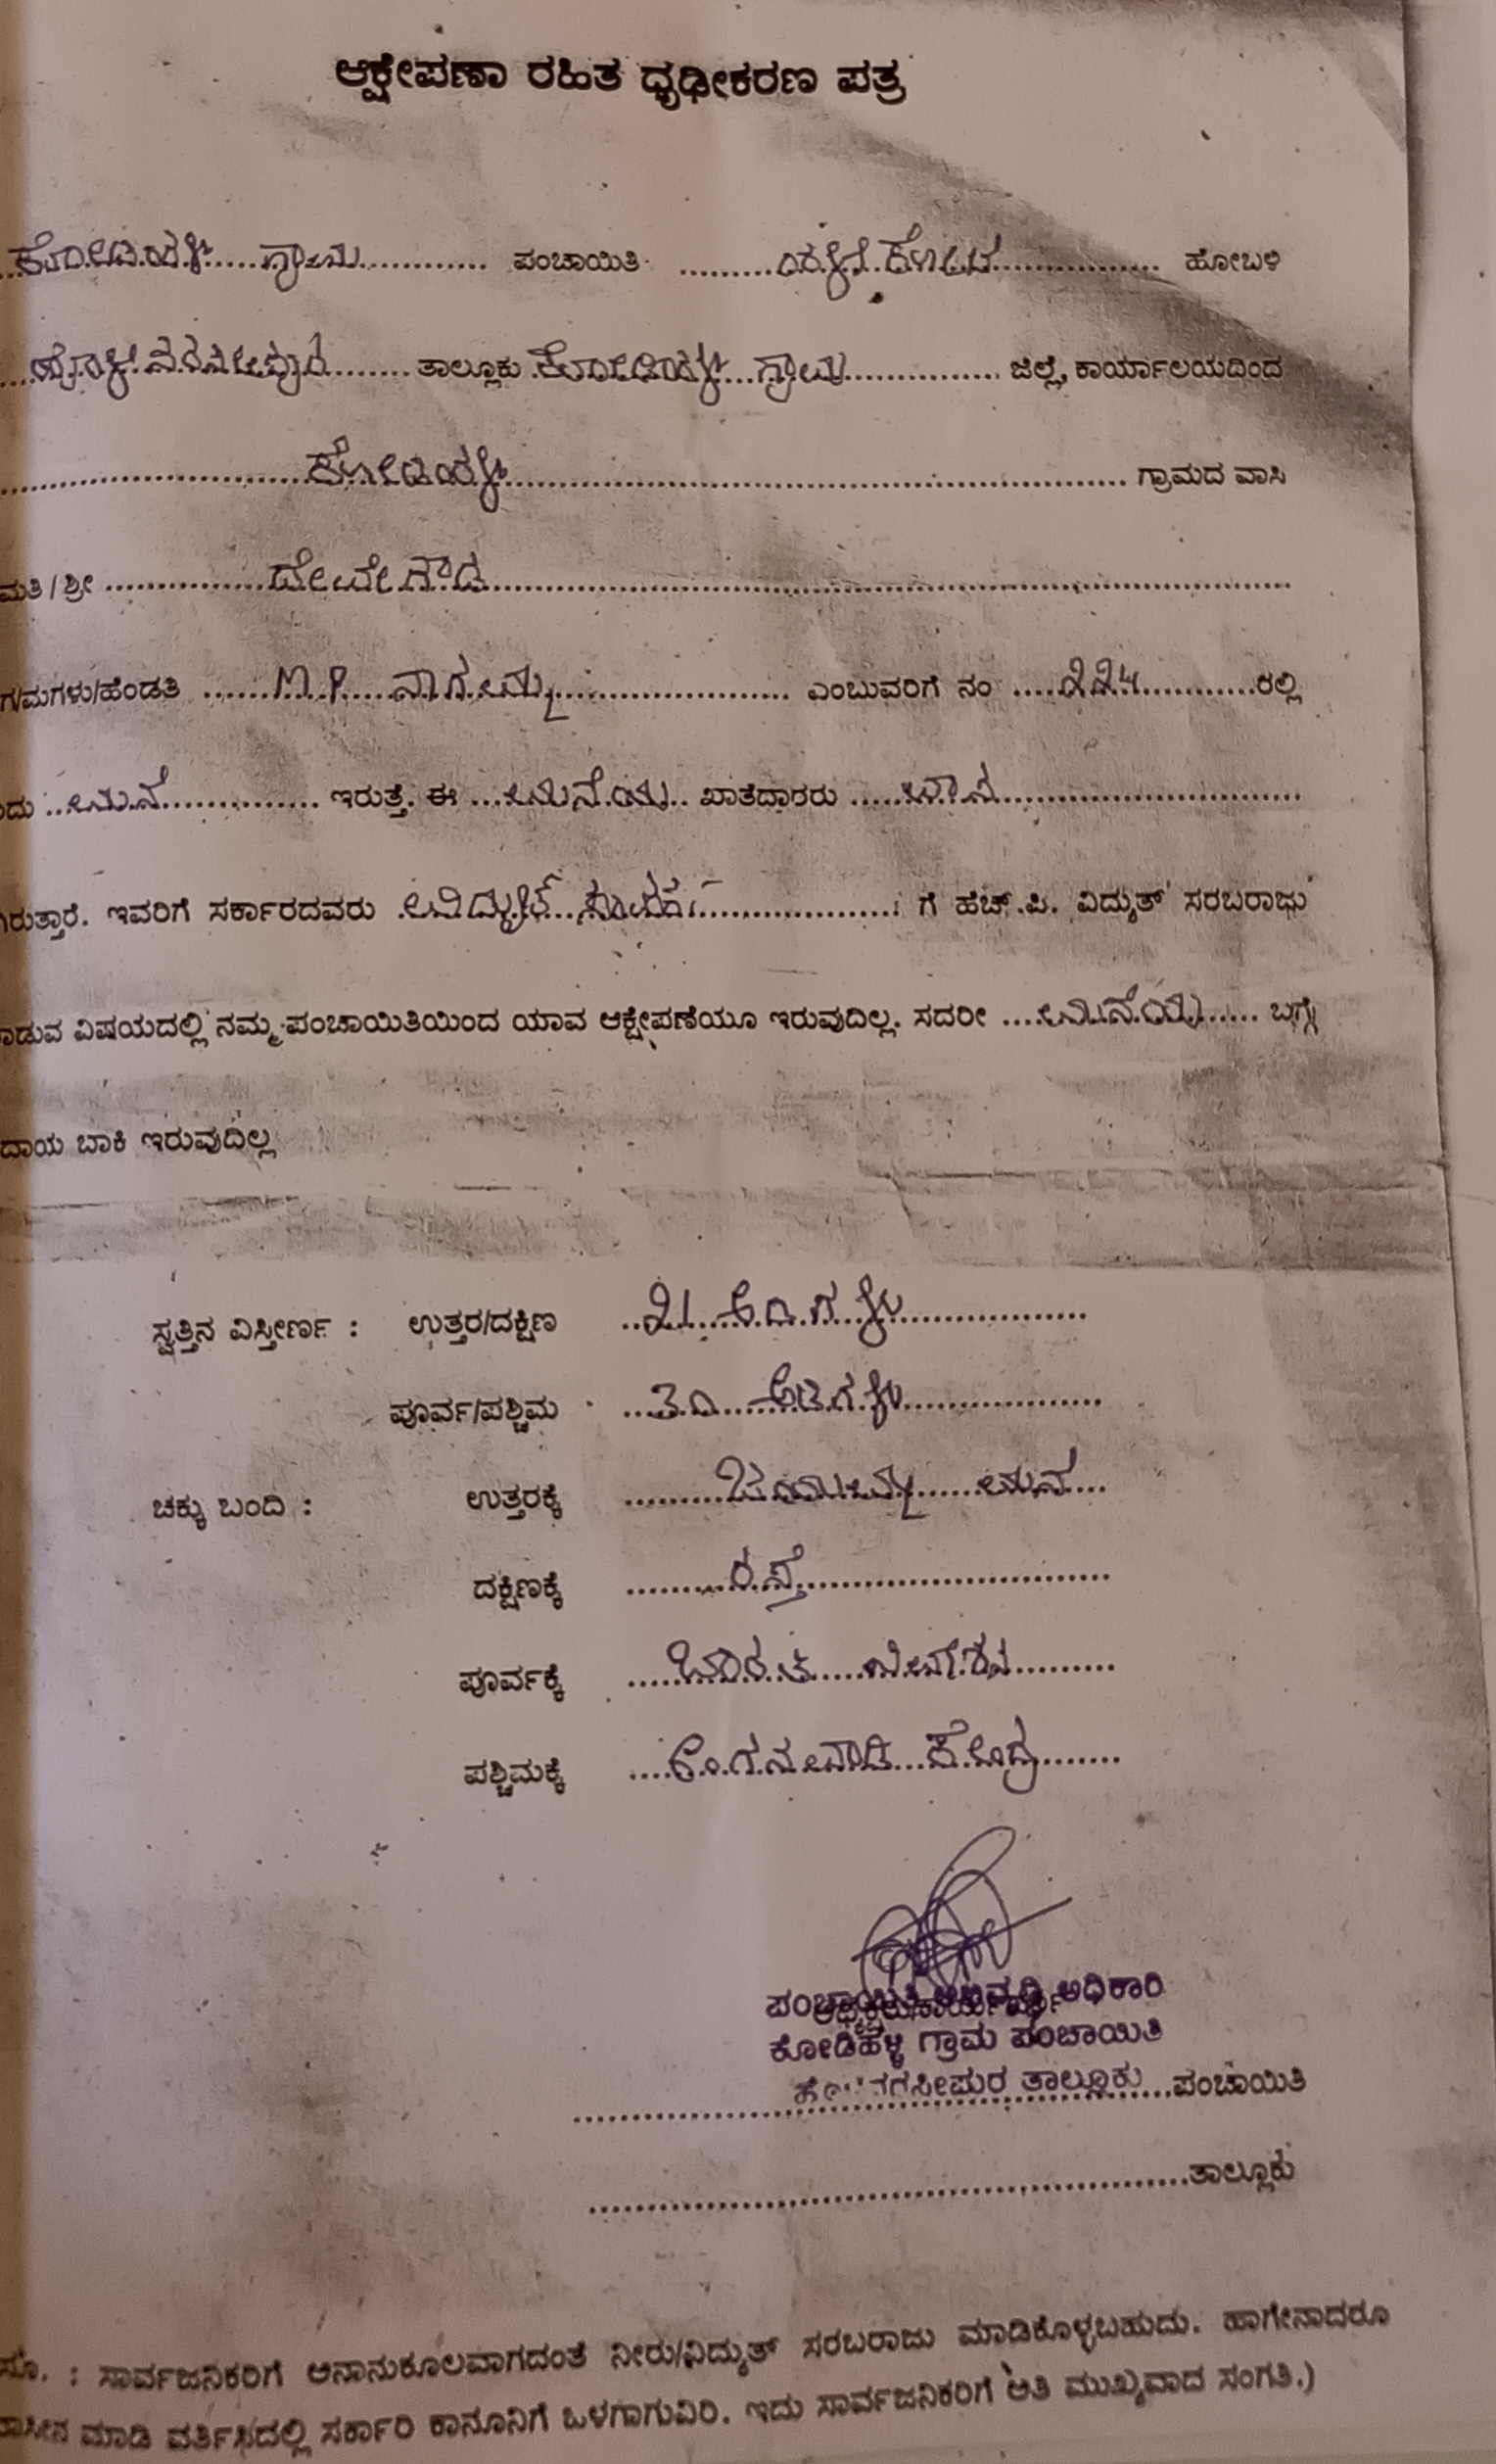 ಆಕ್ಷೇಪಣಾ ರಹಿತ ಧೃಢೀಕರಣ ಪತ್ರ
ಕೋಡಿಹಳ್ಳಿ ಗ್ರಾಮ ಪಂಚಾಯಿತಿ ಹಳ್ಳಿ ಮೈಸೂರು ಹೋಬಳಿ
ಹೊಳೆನರಸೀಪುರ ತಾಲ್ಲೂಕು ಕೋಡಿಹಳ್ಳಿ ಗ್ರಾಮ ಜಿಲ್ಲೆ, ಕಾರ್ಯಾಲಯದಿಂದ
ಕೋಡಿಹಳ್ಳಿ ಗ್ರಾಮದ ವಾಸಿ
ಮತಿ / ಶ್ರೀ ದೇವೇಗೌಡ
ಗ/ಮಗಳು/ಹೆಂಡತಿ M.P ನಾಗಮ್ಮ ಎಂಬುವರಿಗೆ ನಂ ೨೨೪ ರಲ್ಲಿ
ದು ಮನೆ ಇರುತ್ತೆ. ಈ ಮನೆಯ ಖಾತೆದಾರರು
ರುತ್ತಾರೆ. ಇವರಿಗೆ ಸರ್ಕಾರದವರು ವಿದ್ಯುತ್ ಗೆ ಹೆಚ್.ಪಿ. ವಿದ್ಯುತ್ ಸರಬರಾಜು
ಾಡುವ ವಿಷಯದಲ್ಲಿ ನಮ್ಮ ಪಂಚಾಯಿತಿಯಿಂದ ಯಾವ ಆಕ್ಷೇಪಣೆಯೂ ಇರುವುದಿಲ್ಲ. ಸದರೀ ಮನೆಯ ಬಗ್ಗೆ
ದಾಯ ಬಾಕಿ ಇರುವುದಿಲ್ಲ
ಸ್ವತ್ತಿನ ವಿಸ್ತೀರ್ಣ : ಉತ್ತರ/ದಕ್ಷಿಣ ೨೧ ಅಡಿಗಳು
ಪೂರ್ವ/ಪಶ್ಚಿಮ ೩೦ ಅಡಿಗಳು
ಚಕ್ಕು ಬಂದಿ : ಉತ್ತರಕ್ಕೆ ಜಯಮ್ಮ ಮನೆ
ದಕ್ಷಿಣಕ್ಕೆ ರಸ್ತೆ
ಪೂರ್ವಕ್ಕೆ ನಿವೇಶನ
ಪಶ್ಚಿಮಕ್ಕೆ ಅಂಗನವಾಡಿ ಕೇಂದ್ರ
ಪಂಚಾಯಿತಿ ಅಭಿವೃದ್ಧಿ ಅಧಿಕಾರಿ
ಕೋಡಿಹಳ್ಳಿ ಗ್ರಾಮ ಪಂಚಾಯಿತಿ
ಹೊಳೆನರಸೀಪುರ ತಾಲ್ಲೂಕು ಪಂಚಾಯಿತಿ
ತಾಲ್ಲೂಕು
ಸೂ. : ಸಾರ್ವಜನಿಕರಿಗೆ ಅನಾನುಕೂಲವಾಗದಂತೆ ನೀರು/ವಿದ್ಯುತ್ ಸರಬರಾಜು ಮಾಡಿಕೊಳ್ಳಬಹುದು. ಹಾಗೇನಾದರೂ
ಮಾಡಿ ವರ್ತಿಸಿದಲ್ಲಿ ಸರ್ಕಾರಿ ಕಾನೂನಿಗೆ ಒಳಗಾಗುವಿರಿ. ಇದು ಸಾರ್ವಜನಿಕರಿಗೆ ಅತಿ ಮುಖ್ಯವಾದ ಸಂಗತಿ.)